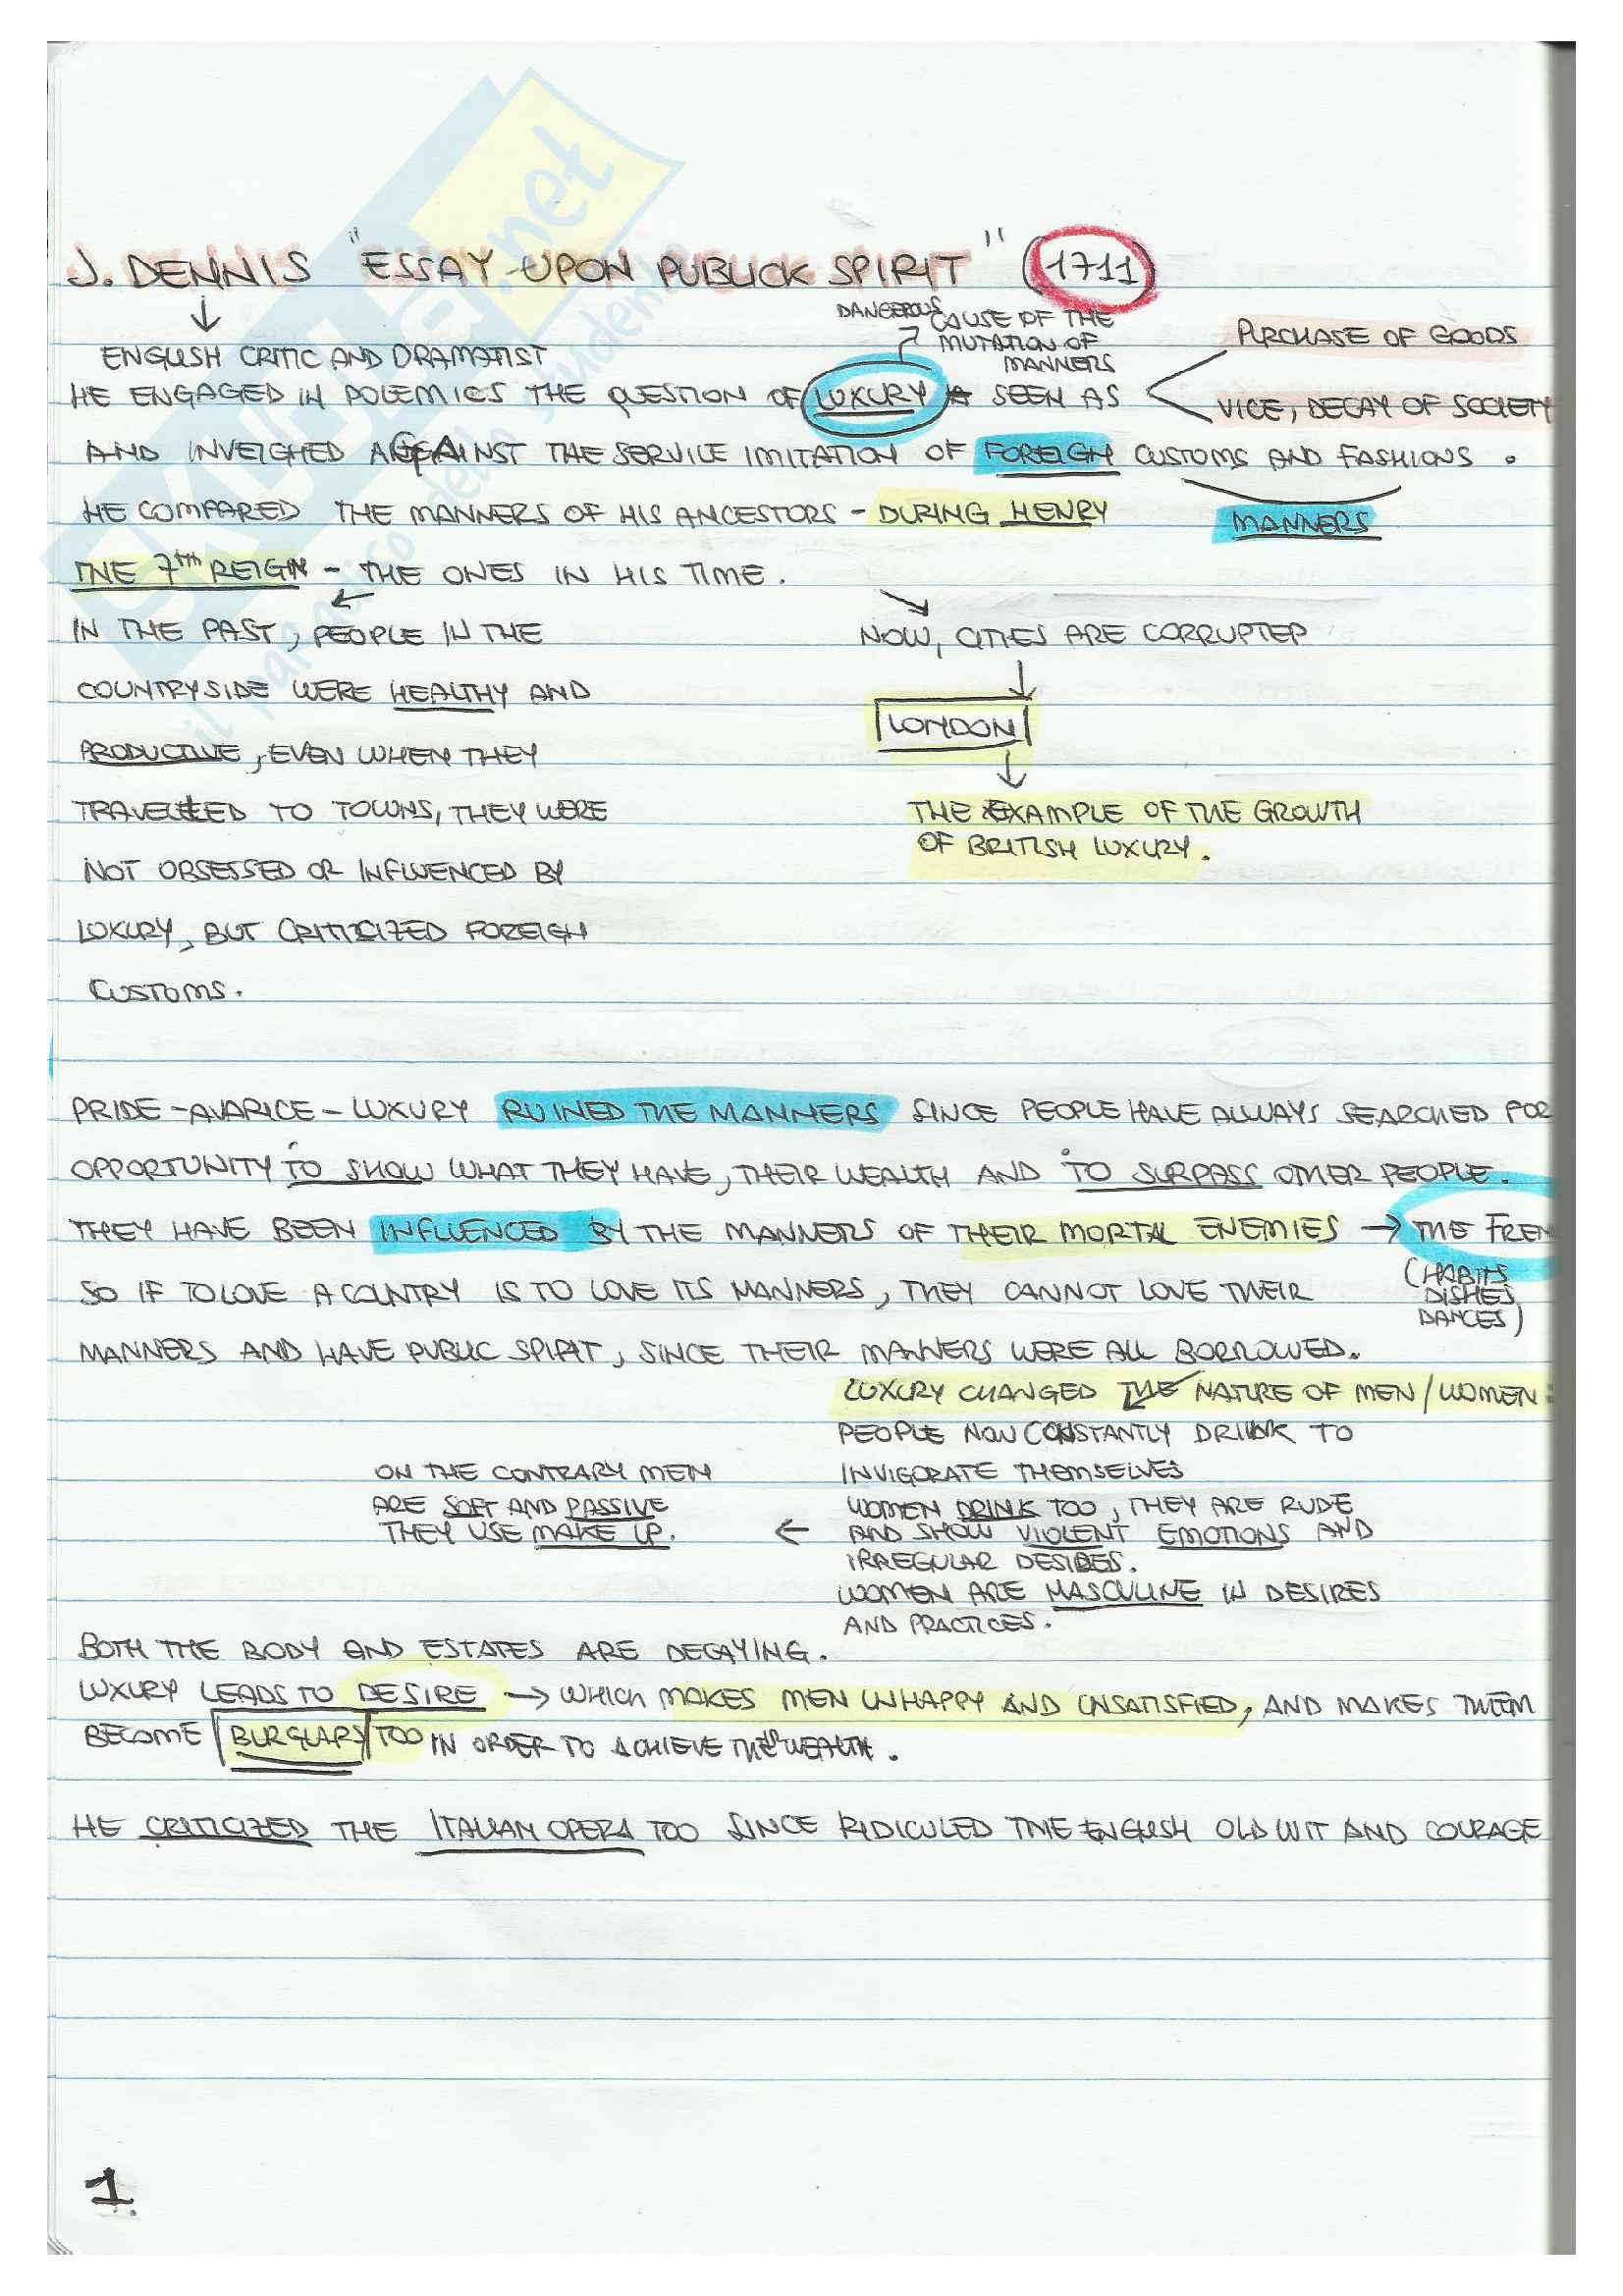 J. DENNIS "ESSAY UPON PUBLICK SPIRIT" (1711)
ENGLISH CRITIC AND DRAMATIST
DANGEROUS CAUSE OF THE
MUTATION OF
MANNERS
PURCHASE OF GOODS
HE ENGAGED IN POLEMICS THE QUESTION OF LUXURY SEEN AS
VICE, DECAY OF SOCIETY
AND INVEIGHED AGAINST THE SERVICE IMITATION OF FOREIGN CUSTOMS AND FASHIONS.
MANNERS
HE COMPARED THE MANNERS OF HIS ANCESTORS - DURING HENRY
THE 7TH REIGN - THE ONES IN HIS TIME.
IN THE PAST, PEOPLE IN THE
COUNTRYSIDE WERE HEALTHY AND
PRODUCTIVE, EVEN WHEN THEY
TRAVELLED TO TOWNS, THEY WERE
NOT OBSESSED OR INFLUENCED BY
LUXURY, BUT CRITICIZED FOREIGN
CUSTOMS.
NOW, CITIES ARE CORRUPTED
LONDON
THE EXAMPLE OF THE GROWTH
OF BRITISH LUXURY.
PRIDE - AVARICE - LUXURY RUINED THE MANNERS SINCE PEOPLE HAVE ALWAYS SEARCHED FOR
OPPORTUNITY TO SHOW WHAT THEY HAVE, THEIR WEALTH AND TO SURPASS OTHER PEOPLE.
THEY HAVE BEEN INFLUENCED BY THE MANNERS OF THEIR MORTAL ENEMIES → THE FREN
(HABITS
DISHES
DANCES)
SO IF TO LOVE A COUNTRY IS TO LOVE ITS MANNERS, THEY CANNOT LOVE THEIR
MANNERS AND HAVE PUBLIC SPIRIT, SINCE THEIR MANNERS WERE ALL BORROWED.
LUXURY CHANGED THE NATURE OF MEN/WOMEN:
PEOPLE NOW CONSTANTLY DRINK TO
INVIGORATE THEMSELVES
WOMEN DRINK TOO, THEY ARE RUDE
AND SHOW VIOLENT EMOTIONS AND
IRREGULAR DESIRES.
WOMEN ARE MASCULINE IN DESIRES
AND PRACTICES.
ON THE CONTRARY MEN
ARE SOFT AND PASSIVE
THEY USE MAKE UP.
BOTH THE BODY AND ESTATES ARE DECAYING.
LUXURY LEADS TO DESIRE → WHICH MAKES MEN UNHAPPY AND UNSATISFIED, AND MAKES THEM
BECOME BURGLARS TOO IN ORDER TO ACHIEVE THE WEALTH.
HE CRITICIZED THE ITALIAN OPERA TOO SINCE RIDICULED THE ENGLISH OLD WIT AND COURAGE
1.